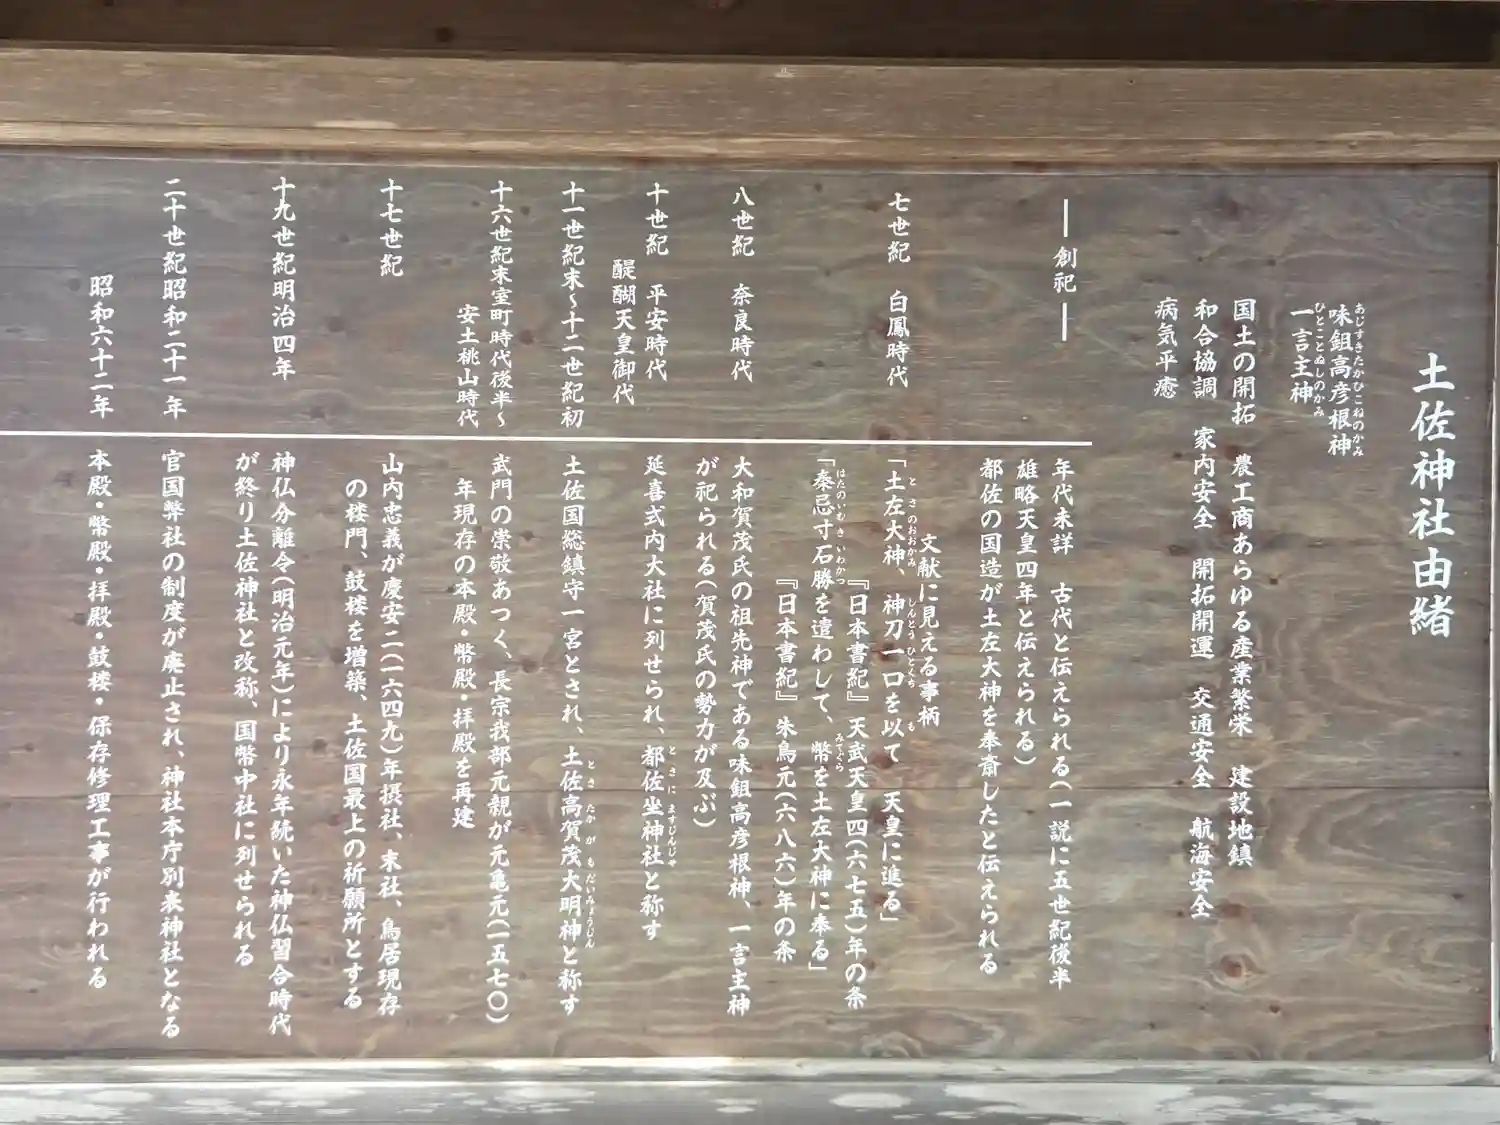 土佐神社由緒
味鉏高彦根神
あじすきたかひこねのかみ
一言主神
ひとことぬしのかみ
国土の開拓 農工商あらゆる産業繁栄 建設地鎮
和合協調 家内安全 開拓開運 交通安全 航海安全
病気平癒
―創祀―
年代未詳 古代と伝えられる(一説に五世紀後半
雄略天皇四年と伝えられる)
都佐の国造が土左大神を奉斎したと伝えられる
文献に見える事柄
七世紀 白鳳時代
「土左大神、神刀一口を以て 天皇に進る」
とさのおおかみ しんとうひとくち も
『日本書紀』 天武天皇四(六七五)年の条
「秦忌寸石勝を遣わして、幣を土左大神に奉る」
はたのいむきいわかつ みてぐら
『日本書紀』 朱鳥元(六八六)年の条
八世紀 奈良時代
大和賀茂氏の祖先神である味鉏高彦根神、一言主神
が祀られる(賀茂氏の勢力が及ぶ)
十世紀 平安時代
醍醐天皇御代
延喜式内大社に列せられ、都佐坐神社と称す
とさにますじんじゃ
十一世紀末~十二世紀初
土佐国総鎮守一宮とされ、土佐高賀茂大明神と称す
とさたかがもだいみょうじん
十六世紀末室町時代後半~
安土桃山時代
武門の崇敬あつく、長宗我部元親が元亀元(一五七〇)
年現存の本殿・幣殿・拝殿を再建
十七世紀
山内忠義が慶安二(一六四九)年摂社、末社、鳥居現存
の楼門、鼓楼を増築、土佐国最上の祈願所とする
十九世紀明治四年
神仏分離令(明治元年)により永年続いた神仏習合時代
が終り土佐神社と改称、国幣中社に列せられる
二十世紀昭和二十一年
官国弊社の制度が廃止され、神社本庁別表神社となる
昭和六十二年
本殿・幣殿・拝殿・鼓楼・保存修理工事が行われる